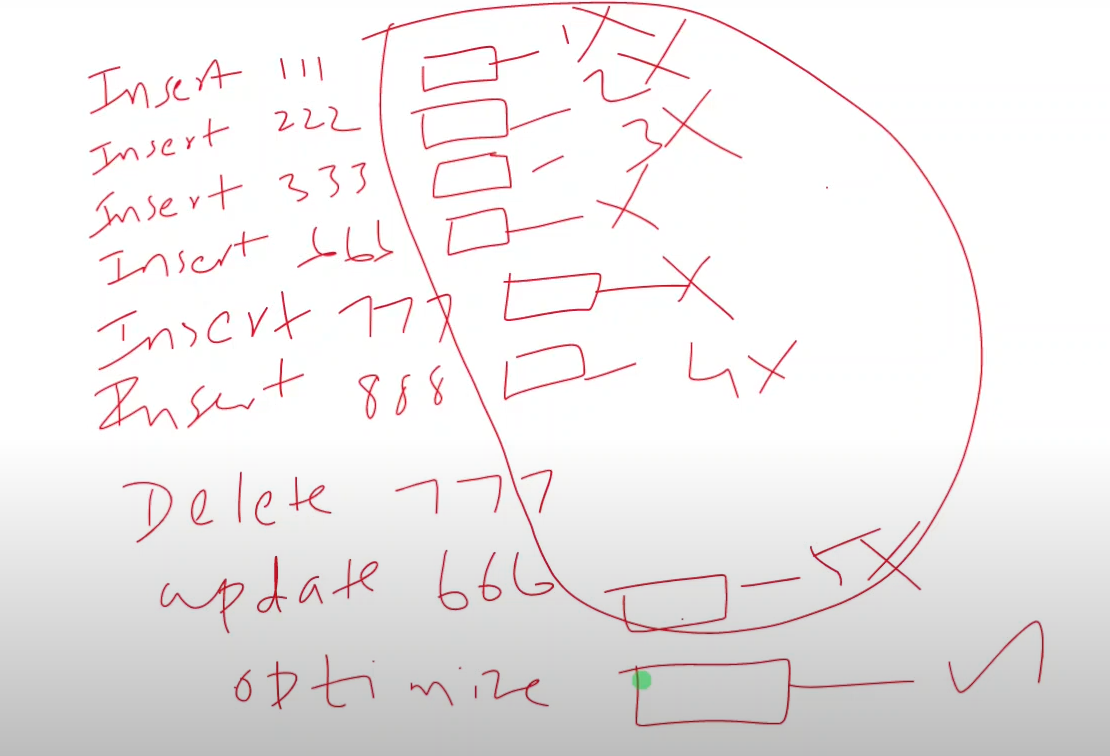 Insert 111 1
Insert 222 2
Insert 333 3
Insert 666
Insert 777
Insert 888 4
Delete 777
update 666 5
optimize